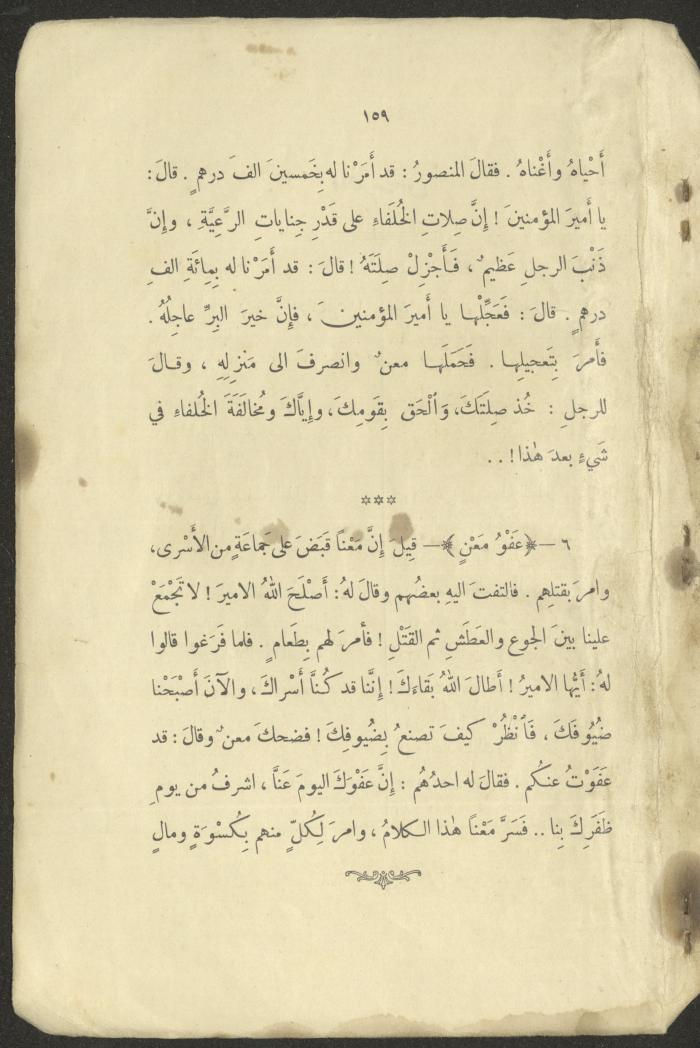 ١٥٩
أَحْياهُ وأَغْناهُ . فقالَ المنصورُ : قد أَمَرْنا له بِخَمسينَ الفَ درهمٍ . قالَ :
يا أَميرَ المؤمنينَ ! إِنَّ صِلاتِ الخُلَفاءِ على قَدْرِ جِناياتِ الرَّعِيَّةِ ، وإِنَّ
ذَنْبَ الرجلِ عَظيمٌ ، فَأَجْزِلْ صِلَتَهُ ! قالَ : قد أَمَرْنا له بِمِائَةِ الفِ
درهمٍ . قالَ : فَعَجِّلْها يا أَميرَ المؤمنينَ ، فإِنَّ خيرَ البِرِّ عاجِلُهُ .
فأَمرَ بِتَعجيلِها . فَحَمَلَها معنٌ وانصرفَ الى مَنزِلِهِ ، وقالَ
للرجلِ : خُذ صِلَتَكَ، وَٱلْحَق بِقَومِكَ، وإِيَّاكَ ومُخالَفَةَ الخُلفاءِ في
شَيءٍ بعدَ هٰذا ! . .
***
٦ —﴿ عَفْوُ مَعْنٍ ﴾— قِيلَ إِنَّ مَعْنًا قَبَضَ على جَماعَةٍ من الأَسْرى،
وامرَ بقتلِهِم . فالتفتَ اليهِ بعضُهم وقالَ لهُ : أَصْلَحَ اللهُ الاميرَ ! لا تَجْمَعْ
علينا بينَ الجوع والعَطَشِ ثم القَتْلِ ! فأمرَ لهم بِطَعامٍ . فلما فَرَغوا قالوا
لهُ : أَيُّها الاميرُ ! أَطالَ اللهُ بَقاءَكَ ! إِنَّنا قد كُنَّا أَسْراكَ، والآنَ أَصْبَحْنا
ضُيُوفَكَ ، فَٱنْظُرْ كيفَ تصنعُ بِضُيوفِكَ ! فضحكَ معنٌ وقالَ : قد
عَفَوْتُ عنكُم . فقالَ له احدُهُم : إِنَّ عَفْوَكَ اليومَ عَنَّا ، اشرفُ من يومِ
ظَفَرِكَ بِنا .. فَسَرَّ مَعْناً هٰذا الكلامُ ، وامرَ لِكُلٍّ منهم بِكُسْوَةٍ ومالٍ